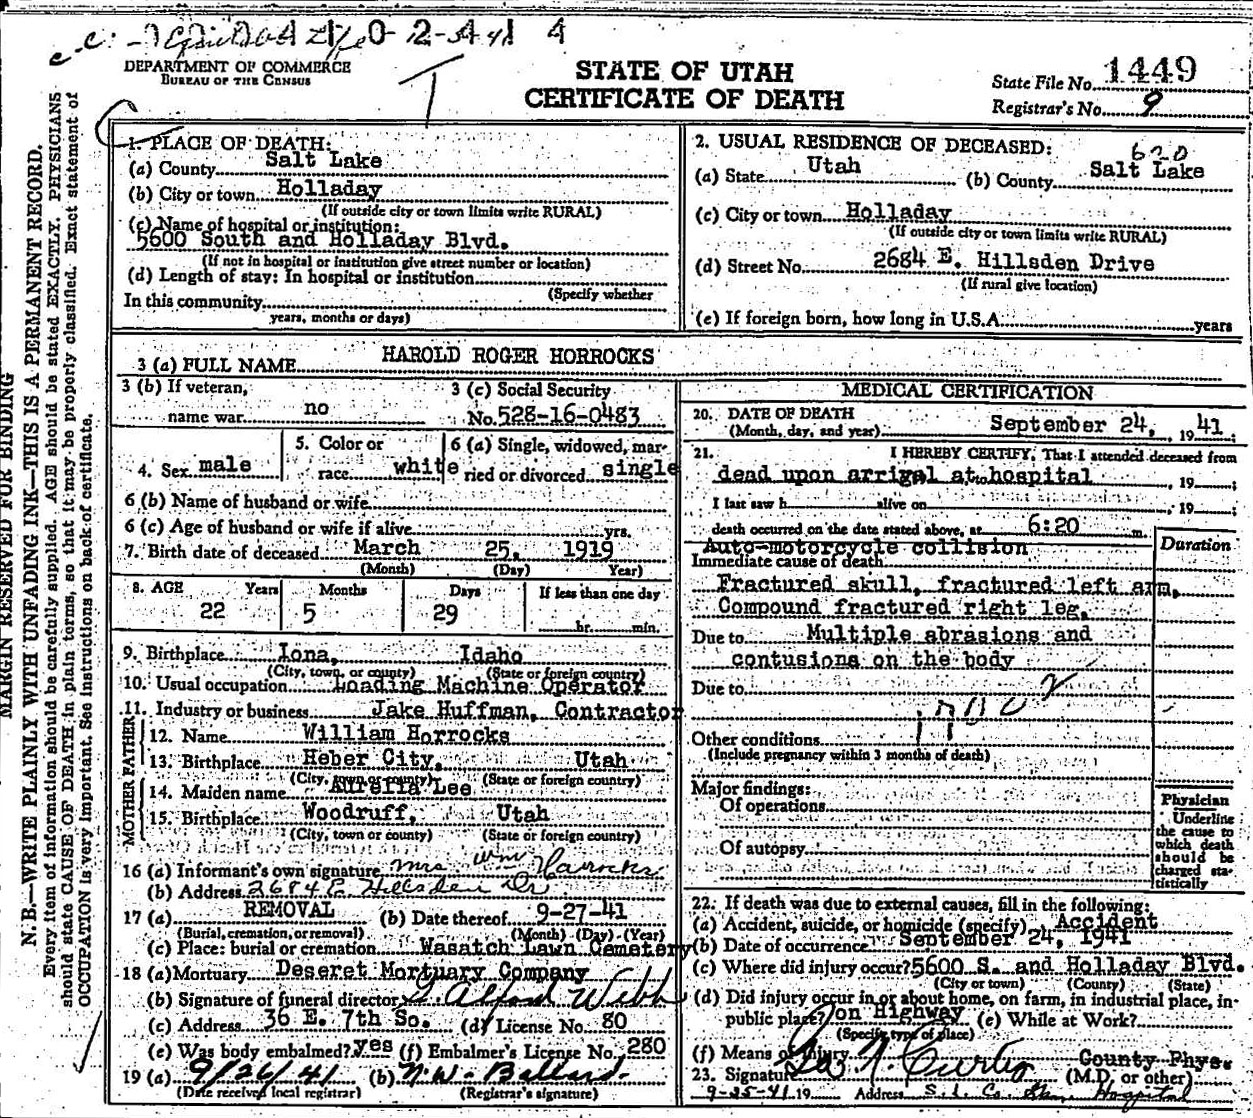 DEPARTMENT OF COMMERCE
BUREAU OF THE CENSUS
STATE OF UTAH
CERTIFICATE OF DEATH
State File No. 1449
Registrar's No. 9
MARGIN RESERVED FOR BINDING
N. B.—WRITE PLAINLY WITH UNFADING INK—THIS IS A PERMANENT RECORD.
Every item of information should be carefully supplied. AGE should be stated EXACTLY. PHYSICIANS
should state CAUSE OF DEATH in plain terms, so that it may be properly classified. Exact statement of
OCCUPATION is very important. See instructions on back of certificate.
1. PLACE OF DEATH:
(a) County Salt Lake
(b) City or town Holladay
(If outside city or town limits write RURAL)
(c) Name of hospital or institution:
5600 South and Holladay Blvd.
(If not in hospital or institution give street number or location)
(d) Length of stay: In hospital or institution
(Specify whether
In this community
years, months or days)
2. USUAL RESIDENCE OF DECEASED:
620
(a) State Utah (b) County Salt Lake
(c) City or town Holladay
(If outside city or town limits write RURAL)
(d) Street No. 2684 E. Hillsden Drive
(If rural give location)
(e) If foreign born, how long in U.S.A. years
3 (a) FULL NAME HAROLD ROGER HORROCKS
3 (b) If veteran, name war no
3 (c) Social Security No. 528-16-0483
4. Sex male
5. Color or race white
6 (a) Single, widowed, married or divorced single
6 (b) Name of husband or wife
6 (c) Age of husband or wife if alive yrs.
7. Birth date of deceased March 25, 1919
(Month) (Day) Year)
8. AGE Years Months Days If less than one day
22 5 29 hr. min.
9. Birthplace Iona, Idaho
(City, town, or county) (State or foreign country)
10. Usual occupation Loading Machine Operator
11. Industry or business Jake Huffman, Contractor
FATHER
12. Name William Horrocks
13. Birthplace Heber City, Utah
(City, town or county) (State or foreign country)
MOTHER
14. Maiden name Aurelia Lee
15. Birthplace Woodruff, Utah
(City, town or county) (State or foreign country)
16 (a) Informant's own signature Mrs Wm Horrocks
(b) Address 2684 E. Hillsden Dr
17 (a) REMOVAL (b) Date thereof 9-27-41
(Burial, cremation, or removal) (Month) (Day) (Year)
(c) Place: burial or cremation Wasatch Lawn Cemetery
18 (a) Mortuary Deseret Mortuary Company
(b) Signature of funeral director Alford Webb
(c) Address 36 E. 7th So. (d) License No. 80
(e) Was body embalmed? yes (f) Embalmer's License No. 280
19 (a) 9/26/41 (b) N. W. Ballard
(Date received local registrar) (Registrar's signature)
MEDICAL CERTIFICATION
20. DATE OF DEATH
(Month, day, and year) September 24, 1941;
21. I HEREBY CERTIFY, That I attended deceased from
dead upon arrival at hospital , 19 ;
I last saw h alive on , 19 ;
death occurred on the date stated above, at 6:20 m.
Duration
Auto-motorcycle collision
Immediate cause of death
Fractured skull, fractured left arm,
Compound fractured right leg,
Due to Multiple abrasions and
contusions on the body
Due to
Other conditions
(Include pregnancy within 3 months of death)
Major findings:
Of operations
Of autopsy
Physician
Underline
the cause to
which death
should be
charged statistically
22. If death was due to external causes, fill in the following:
(a) Accident, suicide, or homicide (specify) Accident
(b) Date of occurrence September 24, 1941
(c) Where did injury occur? 5600 S. and Holladay Blvd.
(City or town) (County) (State)
(d) Did injury occur in or about home, on farm, in industrial place, in
public place? on Highway (e) While at Work?
(Specify type of place)
(f) Means of injury
23. Signature Curtis County Phys.
(M.D. or other)
9-25-41 19 Address S. L. Co. Gen. Hospital